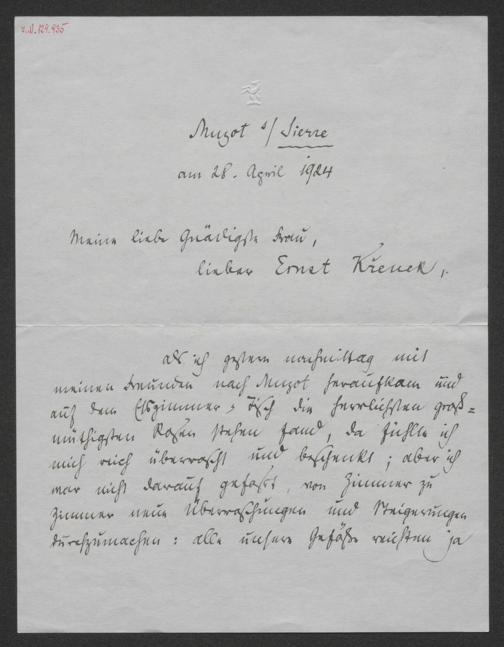 I.N. 129.935
Muzot s/ Sierre
am 28. April 1924
Meine liebe Gnädigste Frau,
lieber Ernst Křenek,
als ich gestern nachmittag mit
meinen Freunden nach Muzot heraufkam und
auf dem Esszimmer-Tisch die herrlichsten groß=
müthigsten Rosen stehen fand, da fühlte ich
mich reich überrascht und beschenkt; aber ich
war nicht darauf gefasst, von Zimmer zu
Zimmer neue Überraschungen und Steigerungen
durchzumachen: alle unsere Gefäße reichten ja